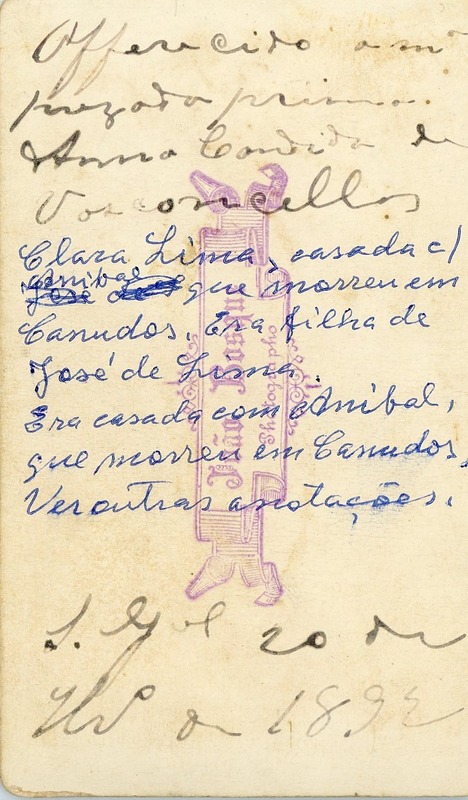 Offerecido a mª
prezada prima
Anna Candida de
Vasconcellos
Clara Lima, casada c/
Anibal
José de que morreu em
Canudos. Era filha de
José de Lima.
Era casada com Anibal,
que morreu em Canudos,
Ver outras anotações.
João
Photographo
20 de
de 189